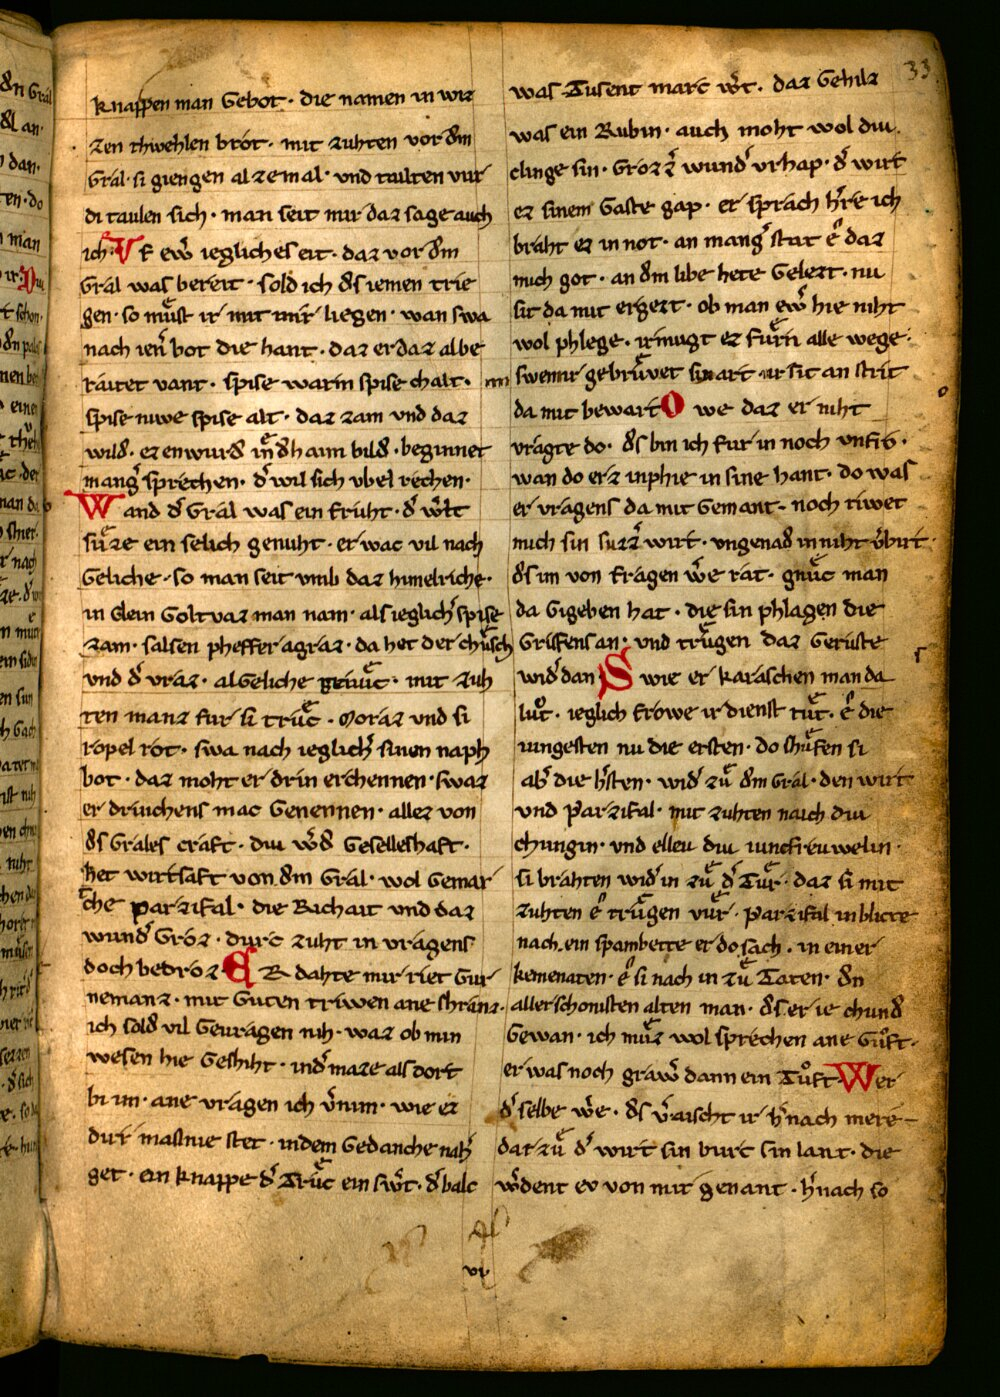 33
knappen man Gebot · die namen in wiz
zen thwehlen brot · mit zuhten vor dem
Gral · si giengen al zemal · und taulten vur
di taulen sich · man seit mir daz sage auch
ich · Vf ew̄ iegliches eit · daz vor dem
Gral was bereit · sold ich des iemen trie
gen · so mu̇st ir mit mir liegen · wan swa
nach ien̄ bot die hant · daz er daz albe
raitet vant · spise warm spise chalt ·
spise niwe spise alt · daz zam und daz
wild · ez enwurd in dhaim bild · beginnet
mang̃ sprechen · d̃ wil sich vbel rechen ·
Wand d̃ Gral was ein fruht · d̃ w̃lt
suze ein selich genuht · er wac vil nach
Geliche · so man seit vmb daz himelriche ·
in clein Goltvaz man nam · als ieglich̃ spise
zam · salsen pheffer agraz · da het der chusch
und d̃ vraz · al Geliche genuc · mit zuh
ten manz fur si truc · Moraz und si
ropel rot · swa nach ieglich̃ sinen naph
bot · daz moht er drin erchennen · swaz
er drinchens mac Genennen · allez von
des Grales craft · diu w̃d Geselleshaft ·
het wirtsaft von dem Gral · wol Gemar
che parzifal · die Richait und daz
wund̃ Groz · durc zuht in vragens
doch bedroz ER dahte mir riet Gur
nemanz · mit Guten triwen ane shranz ·
ich sold vil Gevragen niht · waz ob min
wesen hie Geshiht · in d̃ maze als dort
bi im · ane vragen ich v̄nim · wie ez
dirr masnie stet · in dem Gedanche nah̃
get · ein knappe d̃ truc ein sw̃t · d̃ balc
was Tusent marc w̃t · daz Gehilz
was ein Rubin · auch moht wol diu
clinge sin · Grozz̃ wund̃ vrhap · d̃ wirt
ez sinem Gaste gap · er sprach h̃re ich
braht ez in not · an mang̃ stat ẽ daz
mich got · an dem libe hete Gelezt · nu
sit da mit ergezt · ob man ew̃ hie niht
wol phlege · ir mugt ez furn alle wege ·
swenne ir gebruvet sin art · ir sit an strit
da mit bewart O we daz er niht
vragte do · des bin ich fur in noch vnfro ·
wan do erz inphie in sine hant · do was
er vragens da mit Gemant · noch riwet
mich sin suzz̃ wirt · vngenad in niht v̄birt ·
des im von fragen w̃e rat · gnuc man
da Gigeben hat · die sin phlagen die
Griffens an · und trugen daz Geruste
wid̃ dan Swie er karaschen man da
luͦt · ieglich frowe ir dienst tuͦt · ẽ die
iungesten nu die ersten · do shufen si
ab̃ die h̃sten · wid̃ zu dem Gral · den wirt
und Parzifal · mit zuhten naich diu
chungin · und elleu diu iuncfreuwelin ·
si brahten wid̃ in zu d̃ Tur · daz si mit
zuhten ẽ trugen vur · Parzifal in blicte
nach · ein spambette er do sach · in einer
kemenaten · ẽ si nach in zu Taten · den
aller schonisten alten man · des er ie chund
Gewan · ich muz wol sprechen ane Guͦft ·
er was noch graw̃ dann ein Tuͦft Wer
d̃ selbe w̃e · des v̄raischt ir h̃nach mere
dar zu d̃ wirt sin burc sin lant · die
w̃dent ev von mir genant · h̃nach so
vi